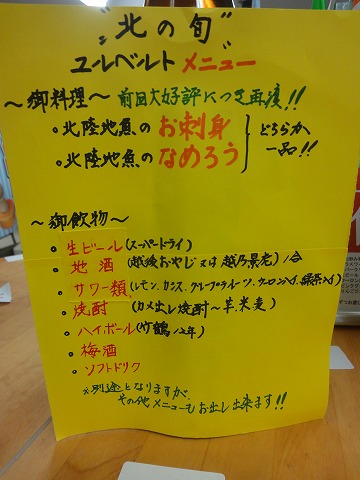 "北の旬"
ユールベルト メニュー
～御料理～ 前回大好評につき再度!!
・北陸地魚の お刺身
・北陸地魚の なめろう
どちらか
一品!!
～御飲物～
・生ビール(スーパードライ)
・地酒(越後おやじ又は越乃景虎)1合
・サワー類(レモン、カシス、グレープフルーツ、ウーロンハイ、緑茶ハイ)
・焼酎(カメ出し焼酎～芋、米、麦)
・ハイボール(竹鶴12年)
・梅酒
・ソフトドリンク
※別途となりますが、
その他メニューもお出し出来ます!!